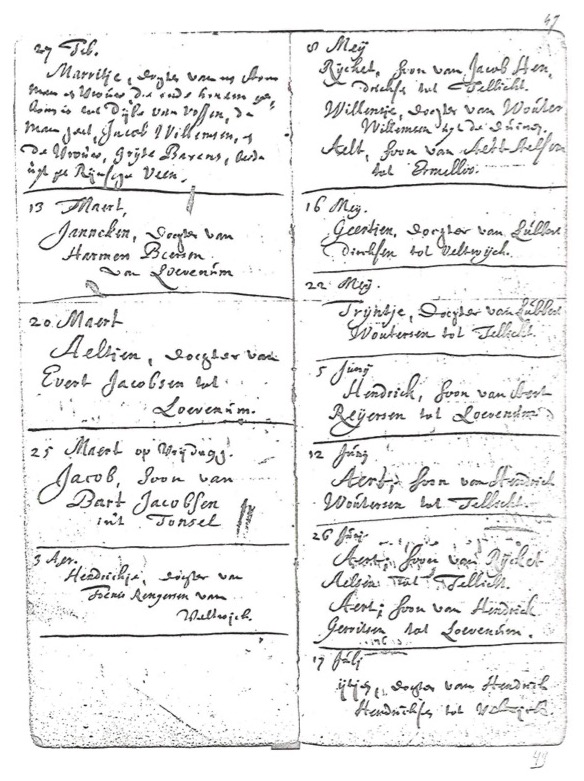 47
27 Feb.
Marritje, dogter van
man
van Vossen, de
man Jacob Willemsen,
de Vrouw, Grijte Barens,
uijt Veen.
13 Maert,
Janneken, dogter van
Harmen Beersen
van Loevenum
20 Maert
Aeltien, dogter van
Evert Jacobsen tot
Loevenum.
25 Maert op Vrijdagg.
Jacob, soon van
Bart Jacobsen
uit Tonsel
3 Apr.
Hendrickje, dogter van
Rengersen van
Veltwijck.
8 Meij
Rijcket, soon van Jacob Hen,
dricksz tot Tellicht.
Willemtje, dogter van Wouter
Willemsen
Aelt, soon van Aelt Aelsen
tot Ermello.
16 Meij.
Geertien, dogter van Lubbert
Dircksen tot Veltwijck.
22 Meij.
Trijntje, dogter van Lubbert
Woutersen tot Tellicht.
5 Junij
Hendrick, soon van Aert
Reijersen tot Loevenum
12 Junij
Aert, soon van Hendrick
Woutersen tot Tellicht.
26 Junij
Aert, soon van Rijcket
Aelsen tot Tellicht.
Aert, soon van Hendrick
Gerritsen tot Loevenum.
17 Julij
dogter van Hendrick
Hendricksz tot Veltwijck.
49